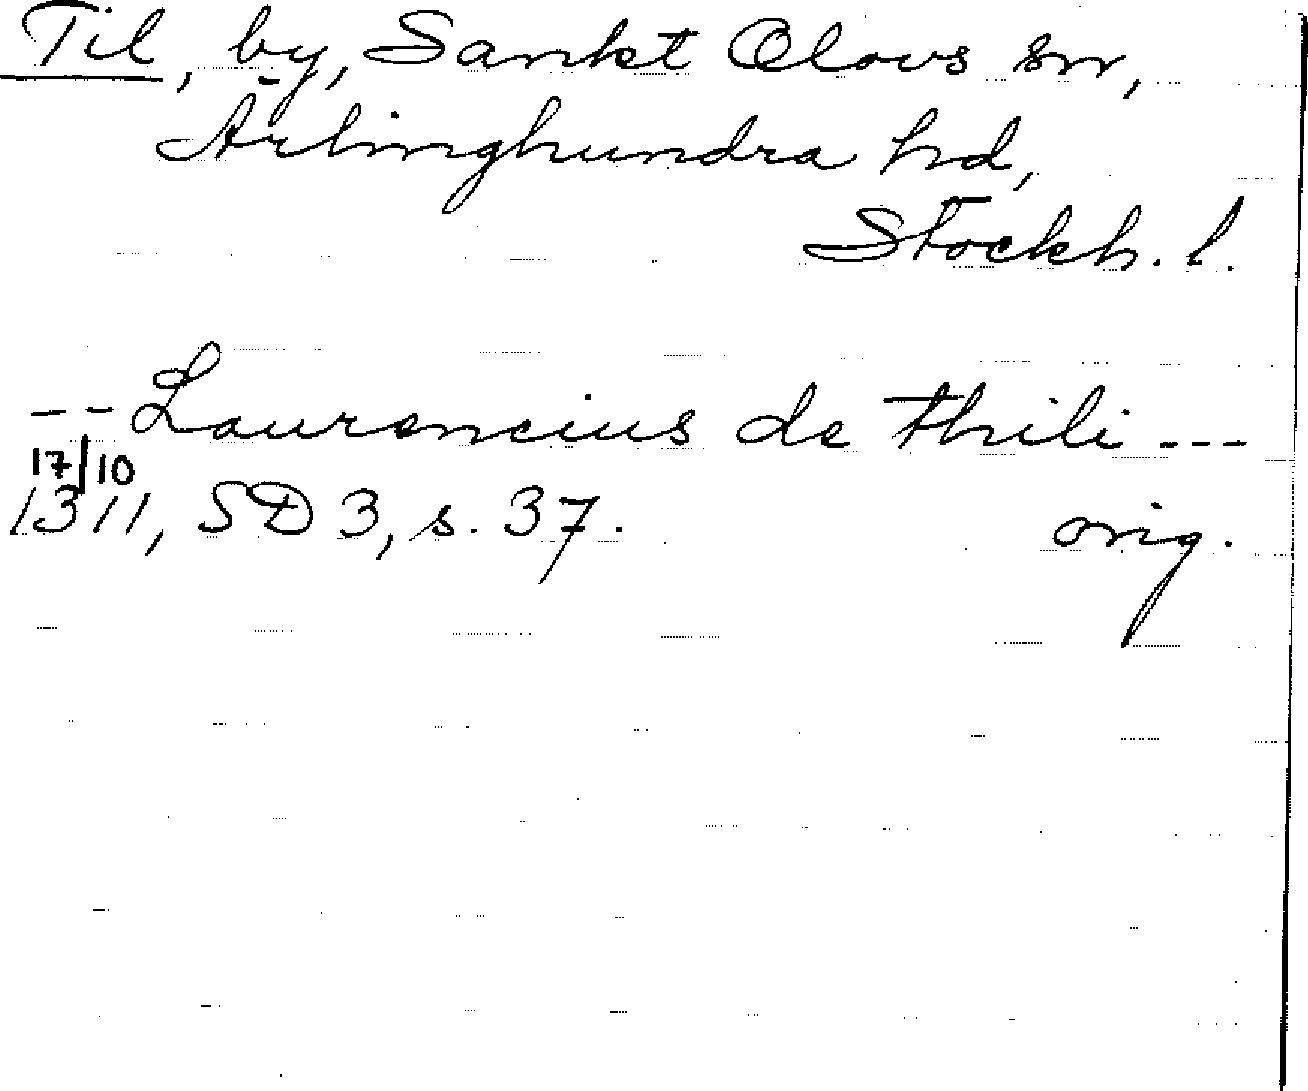 Til, by, Sankt Olovs sn,
Ärlinghundra hd,
Stockh. l.
-- Laurencius de Thili ---
17/10
1311, SD 3, s. 37. orig.